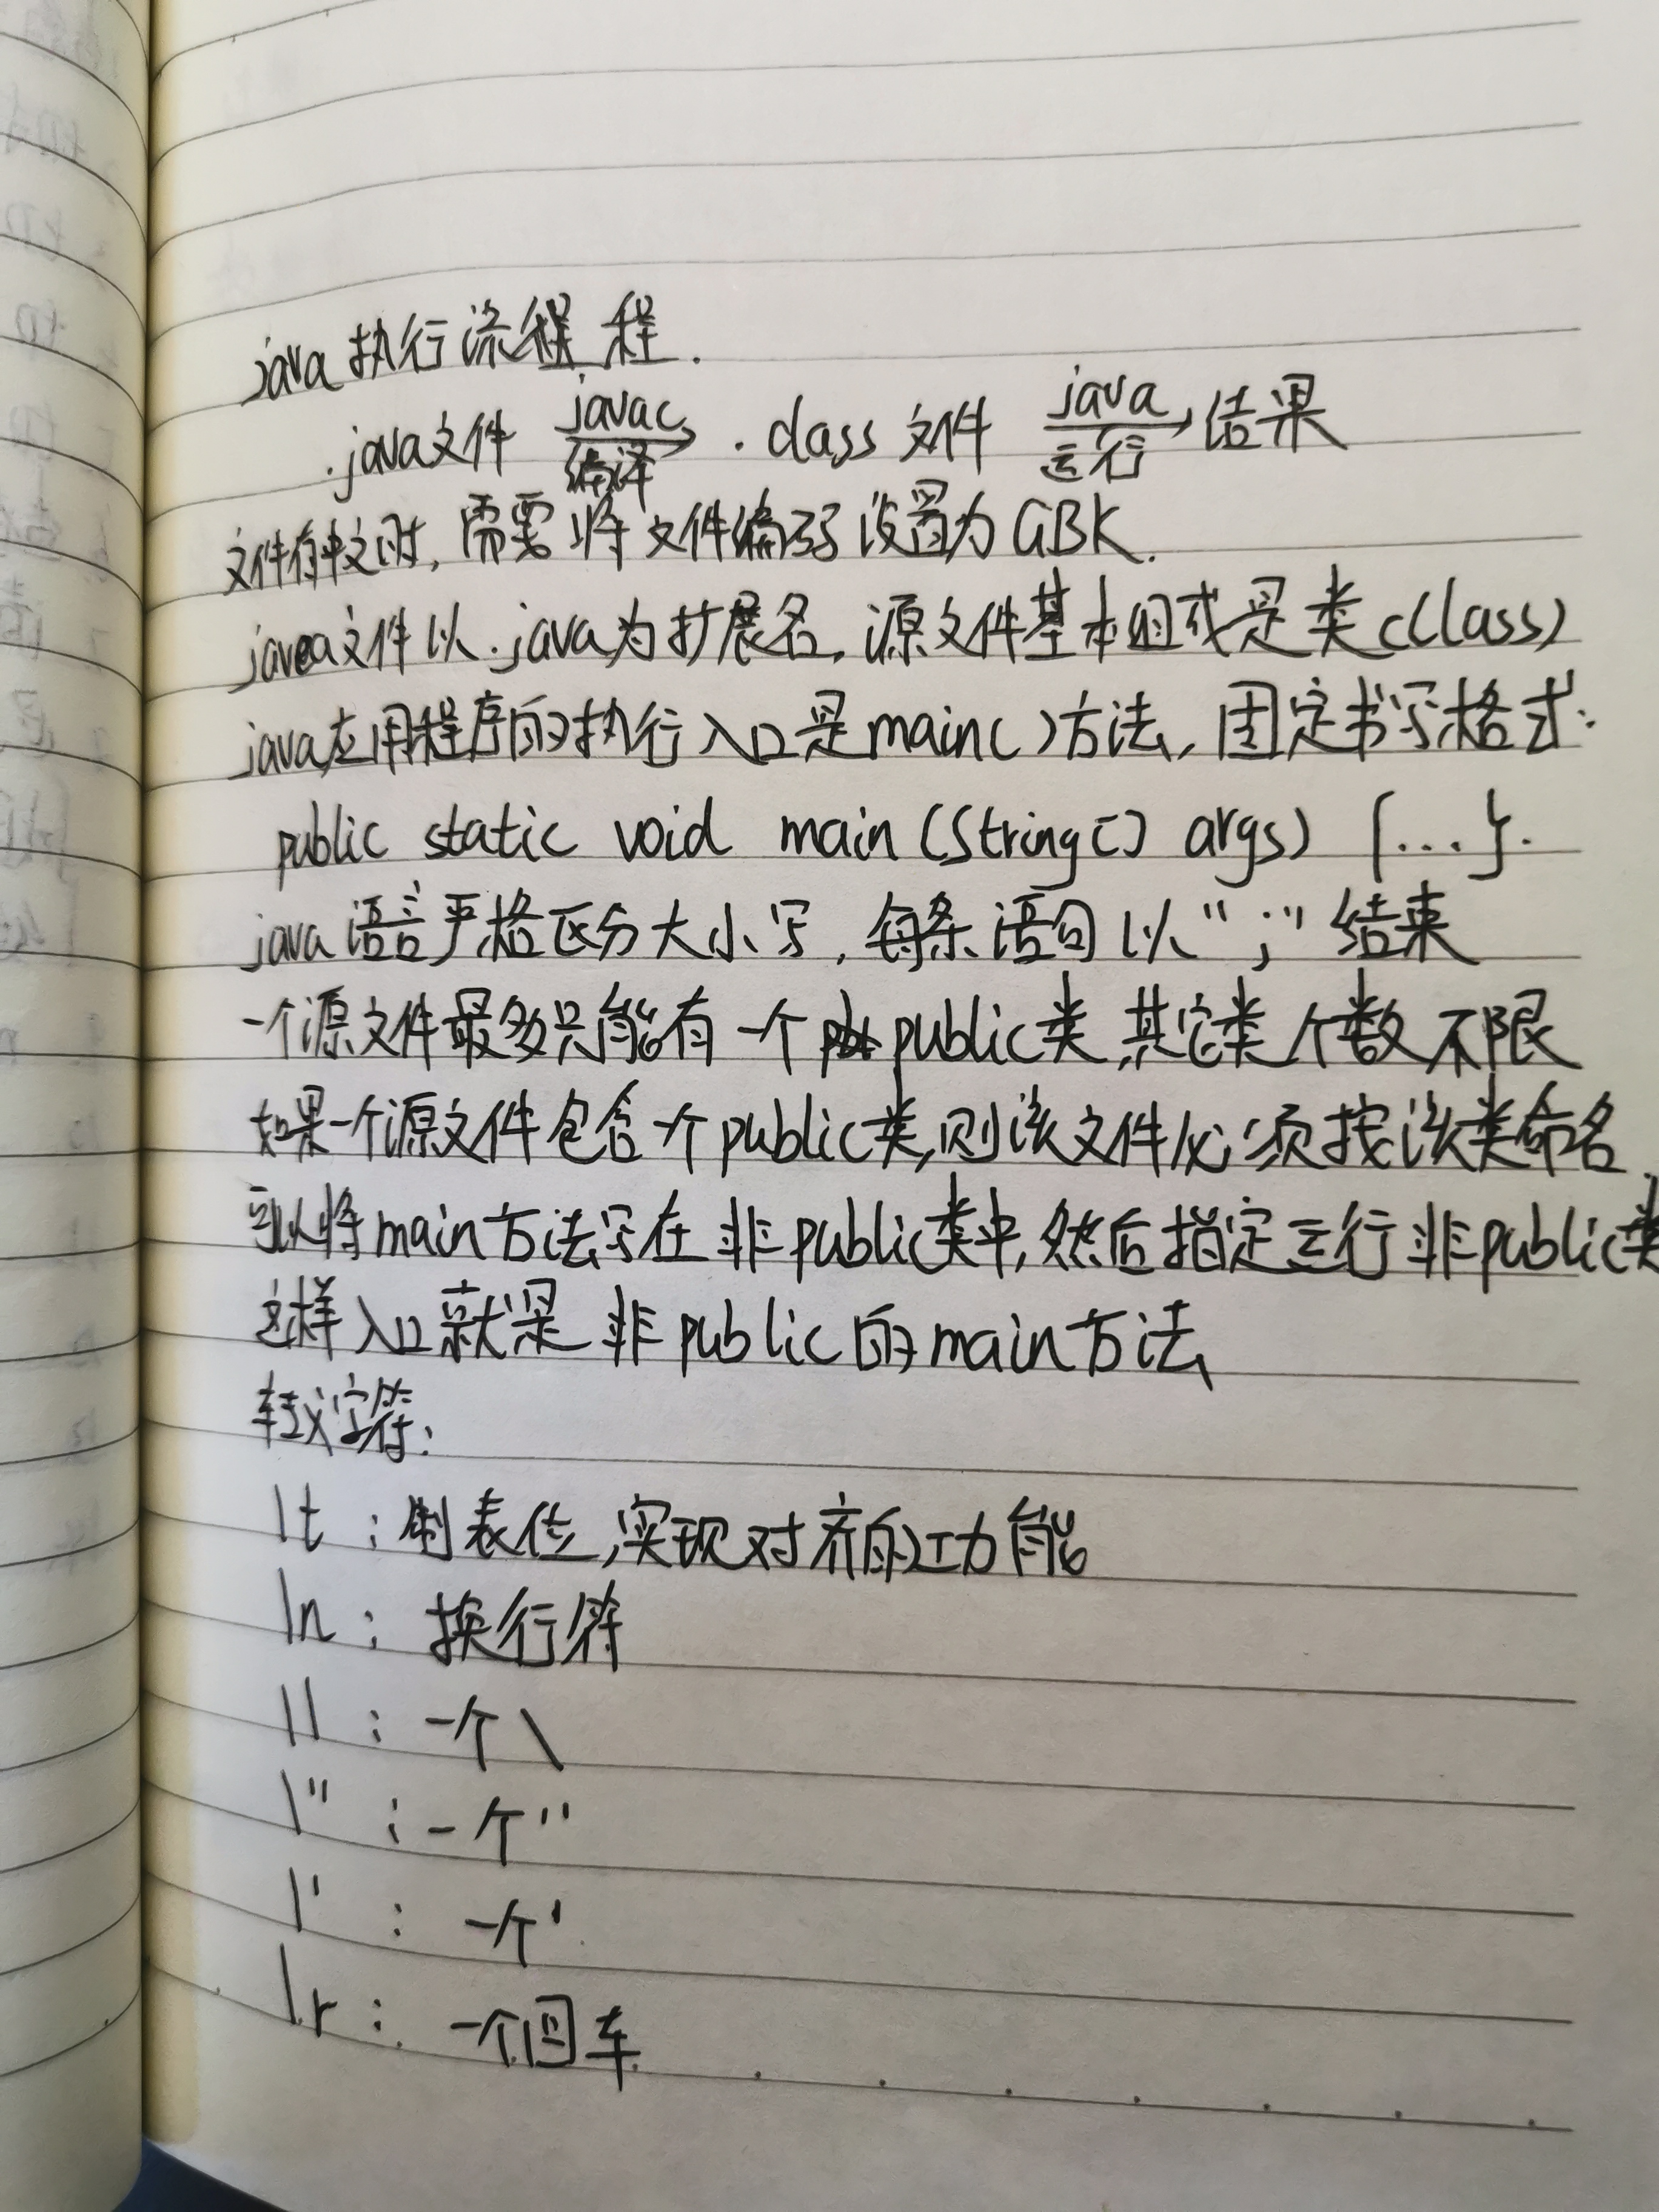 java执行流程.
.java文件 javac编译→ .class文件 java运行→ 结果
文件有中文时,需要将文件编码设置为GBK.
java文件以.java为扩展名,源文件基本组成是类(class)
java应用程序的执行入口是main()方法,固定书写格式:
public static void main(String[] args) {...}.
java语言严格区分大小写,每条语句以";"结束
一个源文件最多只能有一个public类,其它类个数不限
如果一个源文件包含一个public类,则该文件必须按该类命名.
可以将main方法写在非public类中,然后指定运行非public类
这样入口就是非public的main方法
转义字符:
\t:制表位,实现对齐的功能
\n:换行符
\\:一个\
\":一个"
\':一个'
\r:一个回车